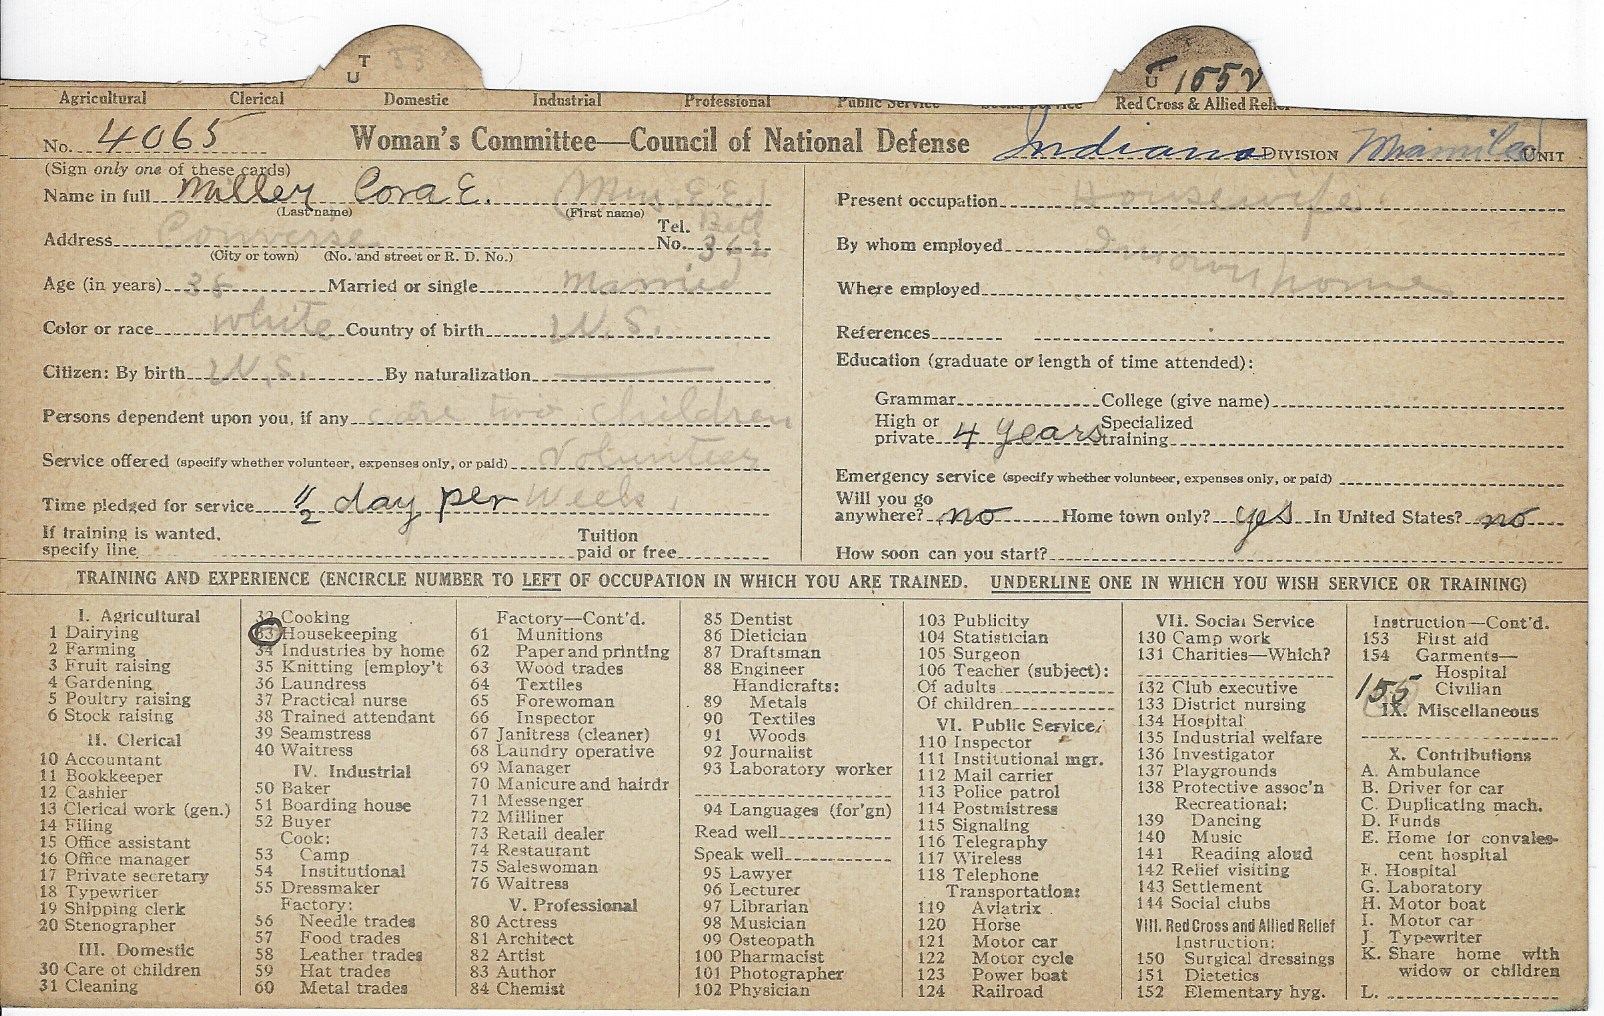 T
U 33
T
U 155
Agricultural Clerical Domestic Industrial Professional Public Service Social Service Red Cross & Allied Relie
No. 4065 Woman's Committee—Council of National Defense Indiana DIVISION Miami UNIT
(Sign only one of these cards)
Name in full Miller Cora E. (Mrs. E.E.)
(Last name) (First name)
Address Converse Tel. No. 362
(City or town) (No. and street or R. D. No.)
Age (in years) 36 Married or single Married
Color or race White Country of birth U.S.
Citizen: By birth U.S. By naturalization
Persons dependent upon you, if any care two children
Service offered (specify whether volunteer, expenses only, or paid) Volunteer
Time pledged for service 1/2 day per week.
If training is wanted, specify line Tuition paid or free
Present occupation Housewife.
By whom employed In own home
Where employed
References
Education (graduate or length of time attended):
Grammar College (give name)
High or private 4 years Specialized training
Emergency service (specify whether volunteer, expenses only, or paid)
Will you go anywhere? no Home town only? yes In United States? no
How soon can you start?
TRAINING AND EXPERIENCE (ENCIRCLE NUMBER TO LEFT OF OCCUPATION IN WHICH YOU ARE TRAINED. UNDERLINE ONE IN WHICH YOU WISH SERVICE OR TRAINING)
I. Agricultural
1 Dairying
2 Farming
3 Fruit raising
4 Gardening
5 Poultry raising
6 Stock raising
II. Clerical
10 Accountant
11 Bookkeeper
12 Cashier
13 Clerical work (gen.)
14 Filing
15 Office assistant
16 Office manager
17 Private secretary
18 Typewriter
19 Shipping clerk
20 Stenographer
III. Domestic
30 Care of children
31 Cleaning
32 Cooking
33 Housekeeping
34 Industries by home
35 Knitting [employ't
36 Laundress
37 Practical nurse
38 Trained attendant
39 Seamstress
40 Waitress
IV. Industrial
50 Baker
51 Boarding house
52 Buyer
Cook:
53 Camp
54 Institutional
55 Dressmaker
Factory:
56 Needle trades
57 Food trades
58 Leather trades
59 Hat trades
60 Metal trades
Factory—Cont'd.
61 Munitions
62 Paper and printing
63 Wood trades
64 Textiles
65 Forewoman
66 Inspector
67 Janitress (cleaner)
68 Laundry operative
69 Manager
70 Manicure and hairdr
71 Messenger
72 Milliner
73 Retail dealer
74 Restaurant
75 Saleswoman
76 Waitress
V. Professional
80 Actress
81 Architect
82 Artist
83 Author
84 Chemist
85 Dentist
86 Dietician
87 Draftsman
88 Engineer
Handicrafts:
89 Metals
90 Textiles
91 Woods
92 Journalist
93 Laboratory worker
94 Languages (for'gn)
Read well
Speak well
95 Lawyer
96 Lecturer
97 Librarian
98 Musician
99 Osteopath
100 Pharmacist
101 Photographer
102 Physician
103 Publicity
104 Statistician
105 Surgeon
106 Teacher (subject):
Of adults
Of children
VI. Public Service
110 Inspector
111 Institutional mgr.
112 Mail carrier
113 Police patrol
114 Postmistress
115 Signaling
116 Telegraphy
117 Wireless
118 Telephone
Transportation:
119 Aviatrix
120 Horse
121 Motor car
122 Motor cycle
123 Power boat
124 Railroad
VII. Social Service
130 Camp work
131 Charities—Which?
132 Club executive
133 District nursing
134 Hospital
135 Industrial welfare
136 Investigator
137 Playgrounds
138 Protective assoc'n
Recreational:
139 Dancing
140 Music
141 Reading aloud
142 Relief visiting
143 Settlement
144 Social clubs
VIII. Red Cross and Allied Relief
Instruction:
150 Surgical dressings
151 Dietetics
152 Elementary hyg.
Instruction—Cont'd.
153 First aid
154 Garments—
Hospital
155 Civilian
IX. Miscellaneous
X. Contributions
A. Ambulance
B. Driver for car
C. Duplicating mach.
D. Funds
E. Home for convales-
cent hospital
F. Hospital
G. Laboratory
H. Motor boat
I. Motor car
J. Typewriter
K. Share home with
widow or children
L.